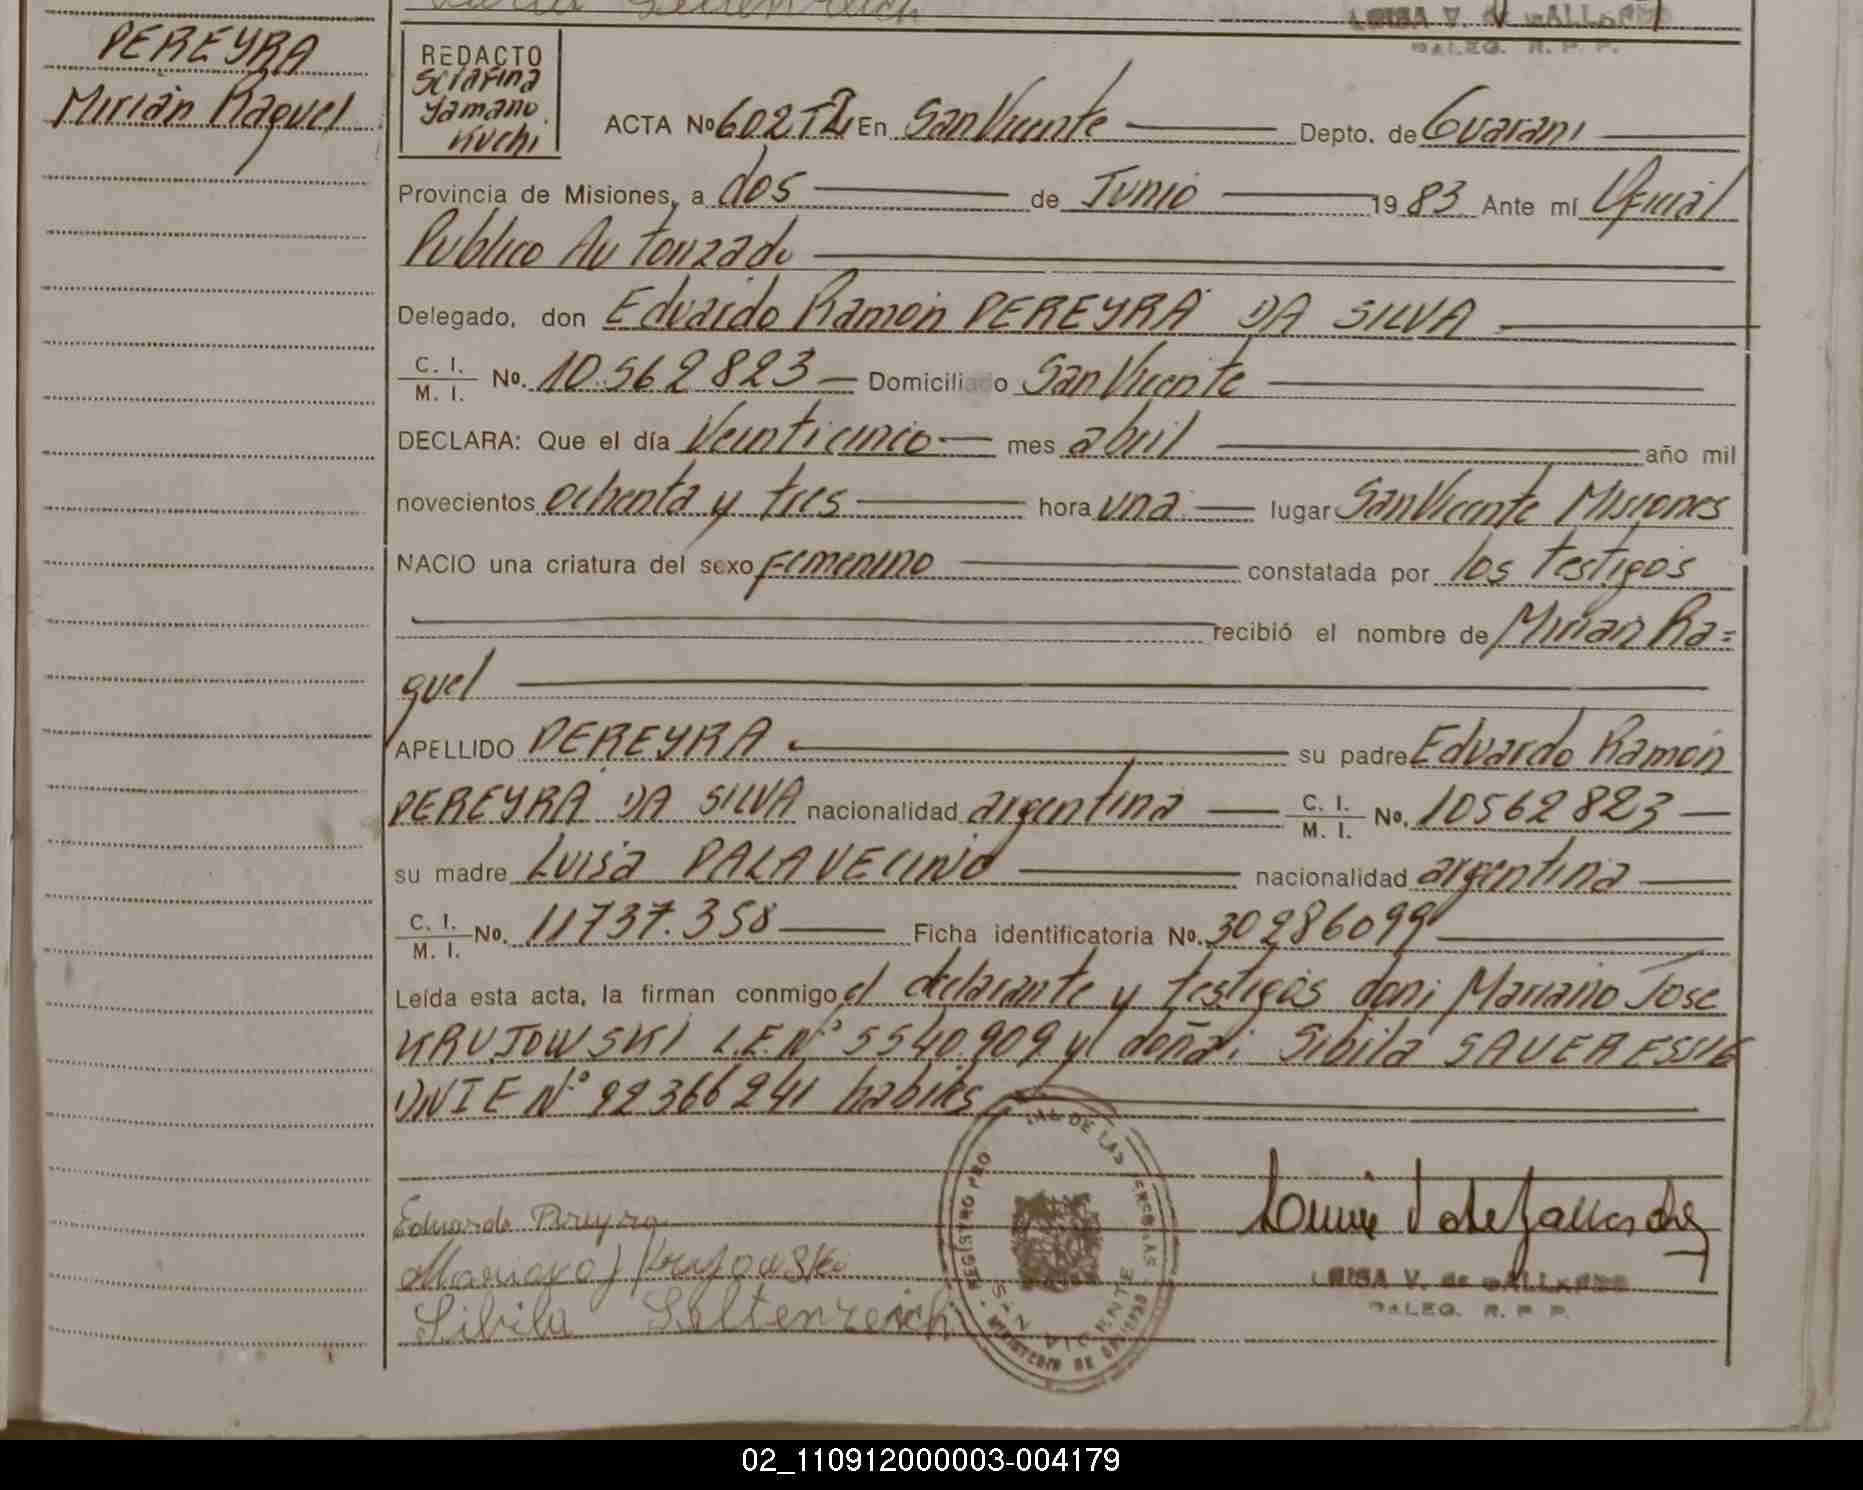 PEREYRA
Mirián Raquel
REDACTO
Serafina
Yamano
Kuchi
ACTA No 602 T2 En San Vicente Depto. de Guaraní
Provincia de Misiones, a dos de Junio 1983 Ante mí Oficial
Público Autorizado
Delegado, don Eduardo Ramón PEREYRA DA SILVA
C. I. / M. I. No. 10.562823 Domiciliado San Vicente
DECLARA: Que el día Veinticinco mes abril año mil
novecientos ochenta y tres hora una lugar San Vicente Misiones
NACIO una criatura del sexo femenino constatada por los testigos
recibió el nombre de Mirian Ra=
quel
APELLIDO PEREYRA su padre Eduardo Ramón
PEREYRA DA SILVA nacionalidad argentina C. I. / M. I. No. 10562823
su madre Luisa PALAVECINO nacionalidad argentina
C. I. / M. I. No. 11737.358 Ficha identificatoria No. 30286099
Leída esta acta, la firman conmigo el declarante y testigos don: Mariano José
KRUJOWSKI L.E.Nº 5540.909 y doña: Sibila SAUERESSIG
DNIE Nº 92366241 hábiles
Eduardo Pereyra
Mariano J Krujowski
Sibila Seltenreich
REGISTRO PRO DE LAS PERSONAS
SAN VICENTE
MINISTERIO DE GOBIERNO
LUISA V. de GALLARDO
DALEG. R. P. P.
02_110912000003-004179